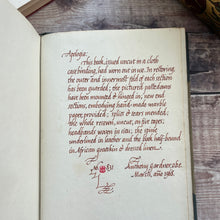 Apologia:
This book, issued uncut in a cloth
case binding, had worn not in use. In restoring,
the outer and innermost fold of each section
has been guarded; the pictured pastedowns
have been mounted & hinged in; new end
sections, embodying hand-made marble
paper, provided; splits & tears mended;
the whole resewn, uncut, on five tapes;
headbands woven in situ; the spine
underlined in leather and the book half-bound
in African goatskin & dressed linen.
Anthony Gardner, obe.
March, año 1968.